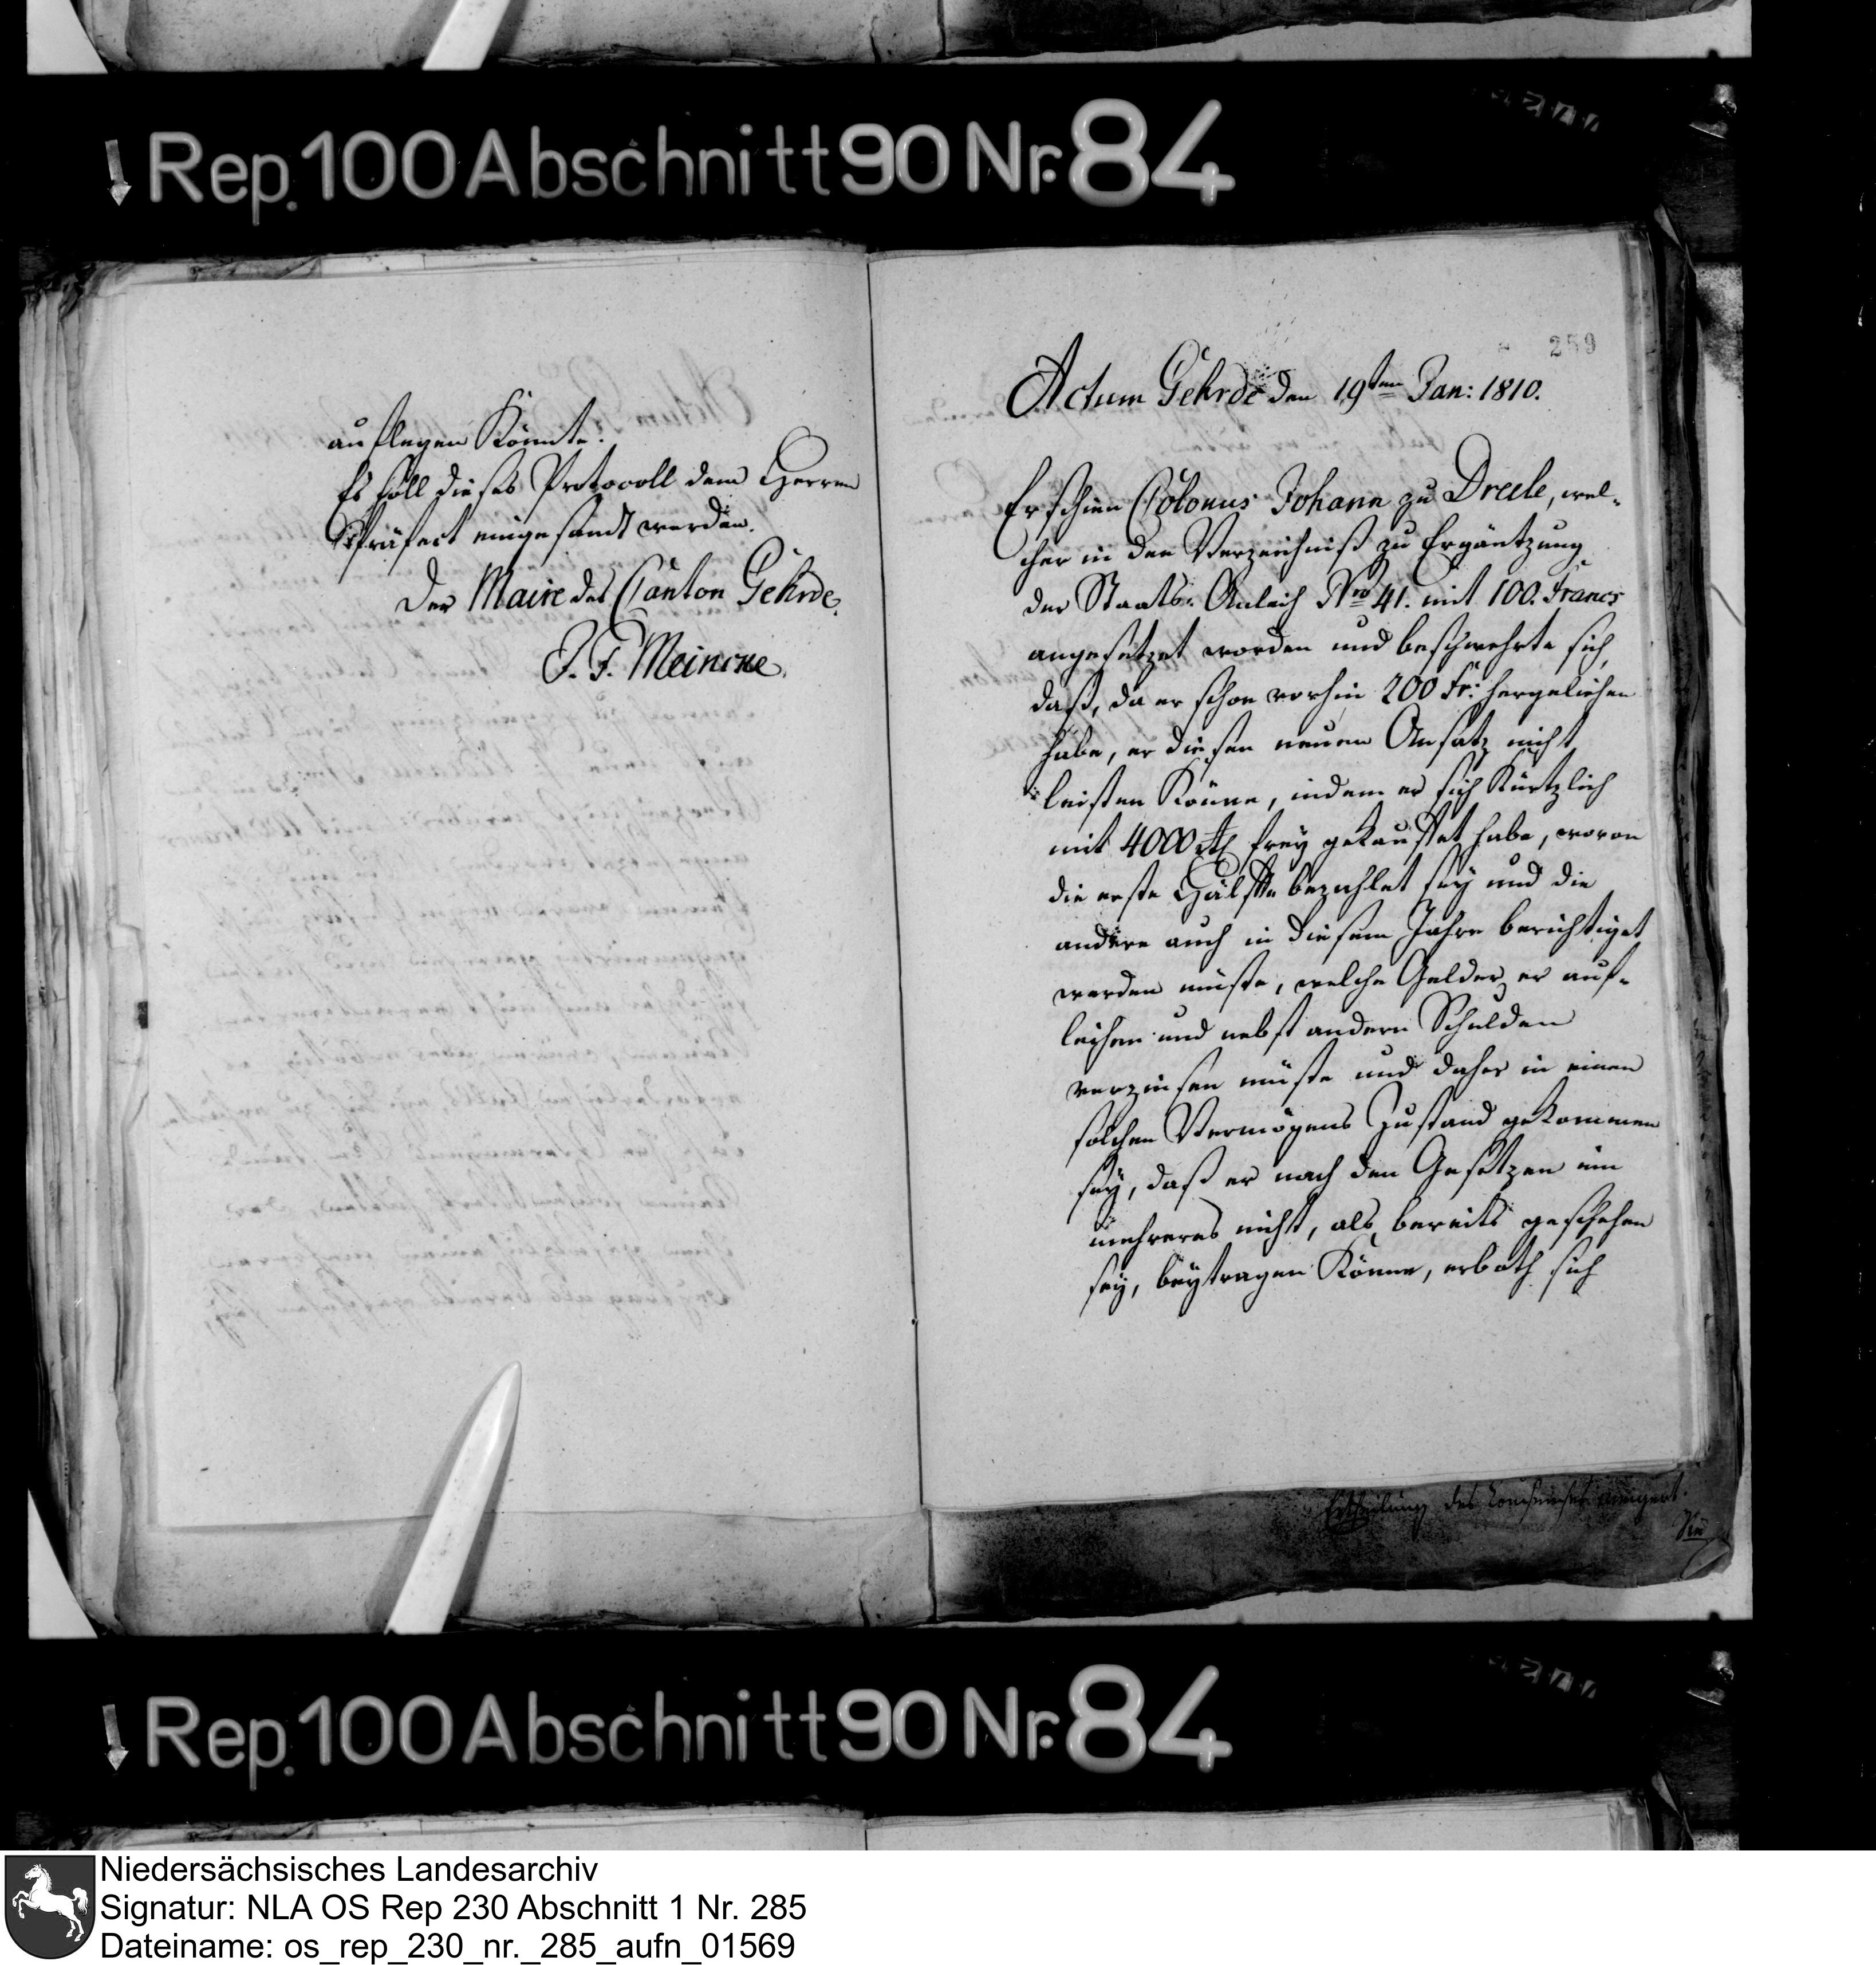 Rep. 100 Abschnitt 90 Nr. 84
auflegen könnte.
Es soll dieses Protocoll dem Herren
Präfect eingesandt werden.
Der Maire des Canton Gehrde.
J. F. Meincke.
259
Actum Gehrde den 19ten Jan: 1810.
Erschien Colonus Johann zu Drele, wel-
cher in den Verzeichniß zu Ergäntzung
der Staats-Anleih Nro 41. mit 100. Francs
angesetzet worden und beschwehrte sich,
daß, da er schon vorhin 200 Fr: hergeliehen
habe, er diesen neuen Ansatz nicht
leisten könne, indem er sich kürtzlich
mit 4000 rtl frey gekauffet habe, wovon
die erste Hälfte bezahlet sey und die
andere auch in diesem Jahre berichtiget
werden müste, welche Gelder er auf-
leihen und nebst andern Schulden
verzinsen müste und daher in einen
solchen Vermögens Zustand gekommen
sey, daß er nach den Gesetzen ein
mehreres nicht, als bereits geschehen
sey, beytragen könne, erboth sich
Ertheilung des
Rep. 100 Abschnitt 90 Nr. 84
Niedersächsisches Landesarchiv
Signatur: NLA OS Rep 230 Abschnitt 1 Nr. 285
Dateiname: os_rep_230_nr._285_aufn_01569